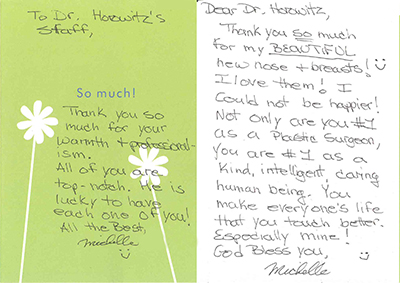 To Dr. Horowitz's
Staff,
So much!
Thank you so
much for your
warmth + professional-
ism.
All of you are
top-notch. He is
lucky to have
each one of you!
All the Best,
Michelle
Dear Dr. Horowitz,
Thank you so much
for my BEAUTIFUL
new nose + breasts!
I love them! I
could not be happier!
Not only are you #1
as a Plastic Surgeon,
you are #1 as a
kind, intelligent, caring
human being. You
make everyone's life
that you touch better.
Especially mine!
God Bless you,
Michelle